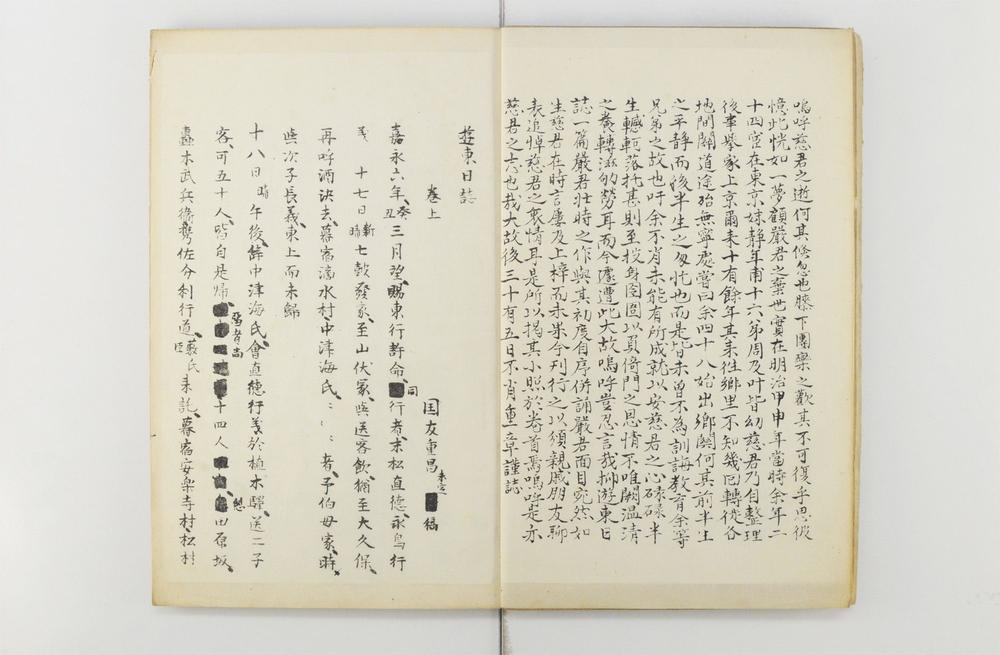 嗚呼慈君之逝何其倏忽也膝下團欒之歡其不可復乎思彼
憶此恍如一夢顧嚴君之棄世實在明治甲申年當時余年二
十四宦在東京妹静年甫十六弟周及叶皆幼慈君乃自整理
後事擧家上京爾来十有餘年其来徃郷里不知幾回轉徙各
地間關道途殆無寧處嘗曰余四十八始出郷關何其前半生
之平静而後半生之匆忙也而是皆未曽不為訓誨教育余等
兄弟之故也吁余不肖未能有所成就以安慈君之心碌碌半
生轗軻落托甚則至投身囹圄以負倚門之恩情不唯闕温凊
之養轉滋劬勞耳而今遽遭此大故嗚呼豈忍言哉抑游東日
誌一篇嚴君壮時之作與其初度自序併誦嚴君面目宛然如
生慈君在時言屢及上梓而未果今刊行之以頒親戚朋友聊
表追悼慈君之衷情耳是所以掲其小照於卷首焉嗚呼是亦
慈君之志也哉大故後三十有五日不肖重章謹誌
遊東日誌
卷上
国友重昌 未定 稿
嘉永六年、癸丑三月望、賜東行許命、同行者、末松直徳、永鳥行
義 十七日 新晴 七皷發家、至山伏冢、與送客飲、猶至大久保、
再呼酒決去、暮宿濤水村、中津海氏、ミミ者、予伯母家、時、
与次子長義、東上而未歸
十八日 晴 午後、辞中津海氏、會直徳行義於植木驛、送二子
客、可五十人、皆自是帰、留者尚十四人 憩田原坂、
轟木武兵衛、携佐分利行道、藪氏臣来訪、暮宿安楽寺村、松村